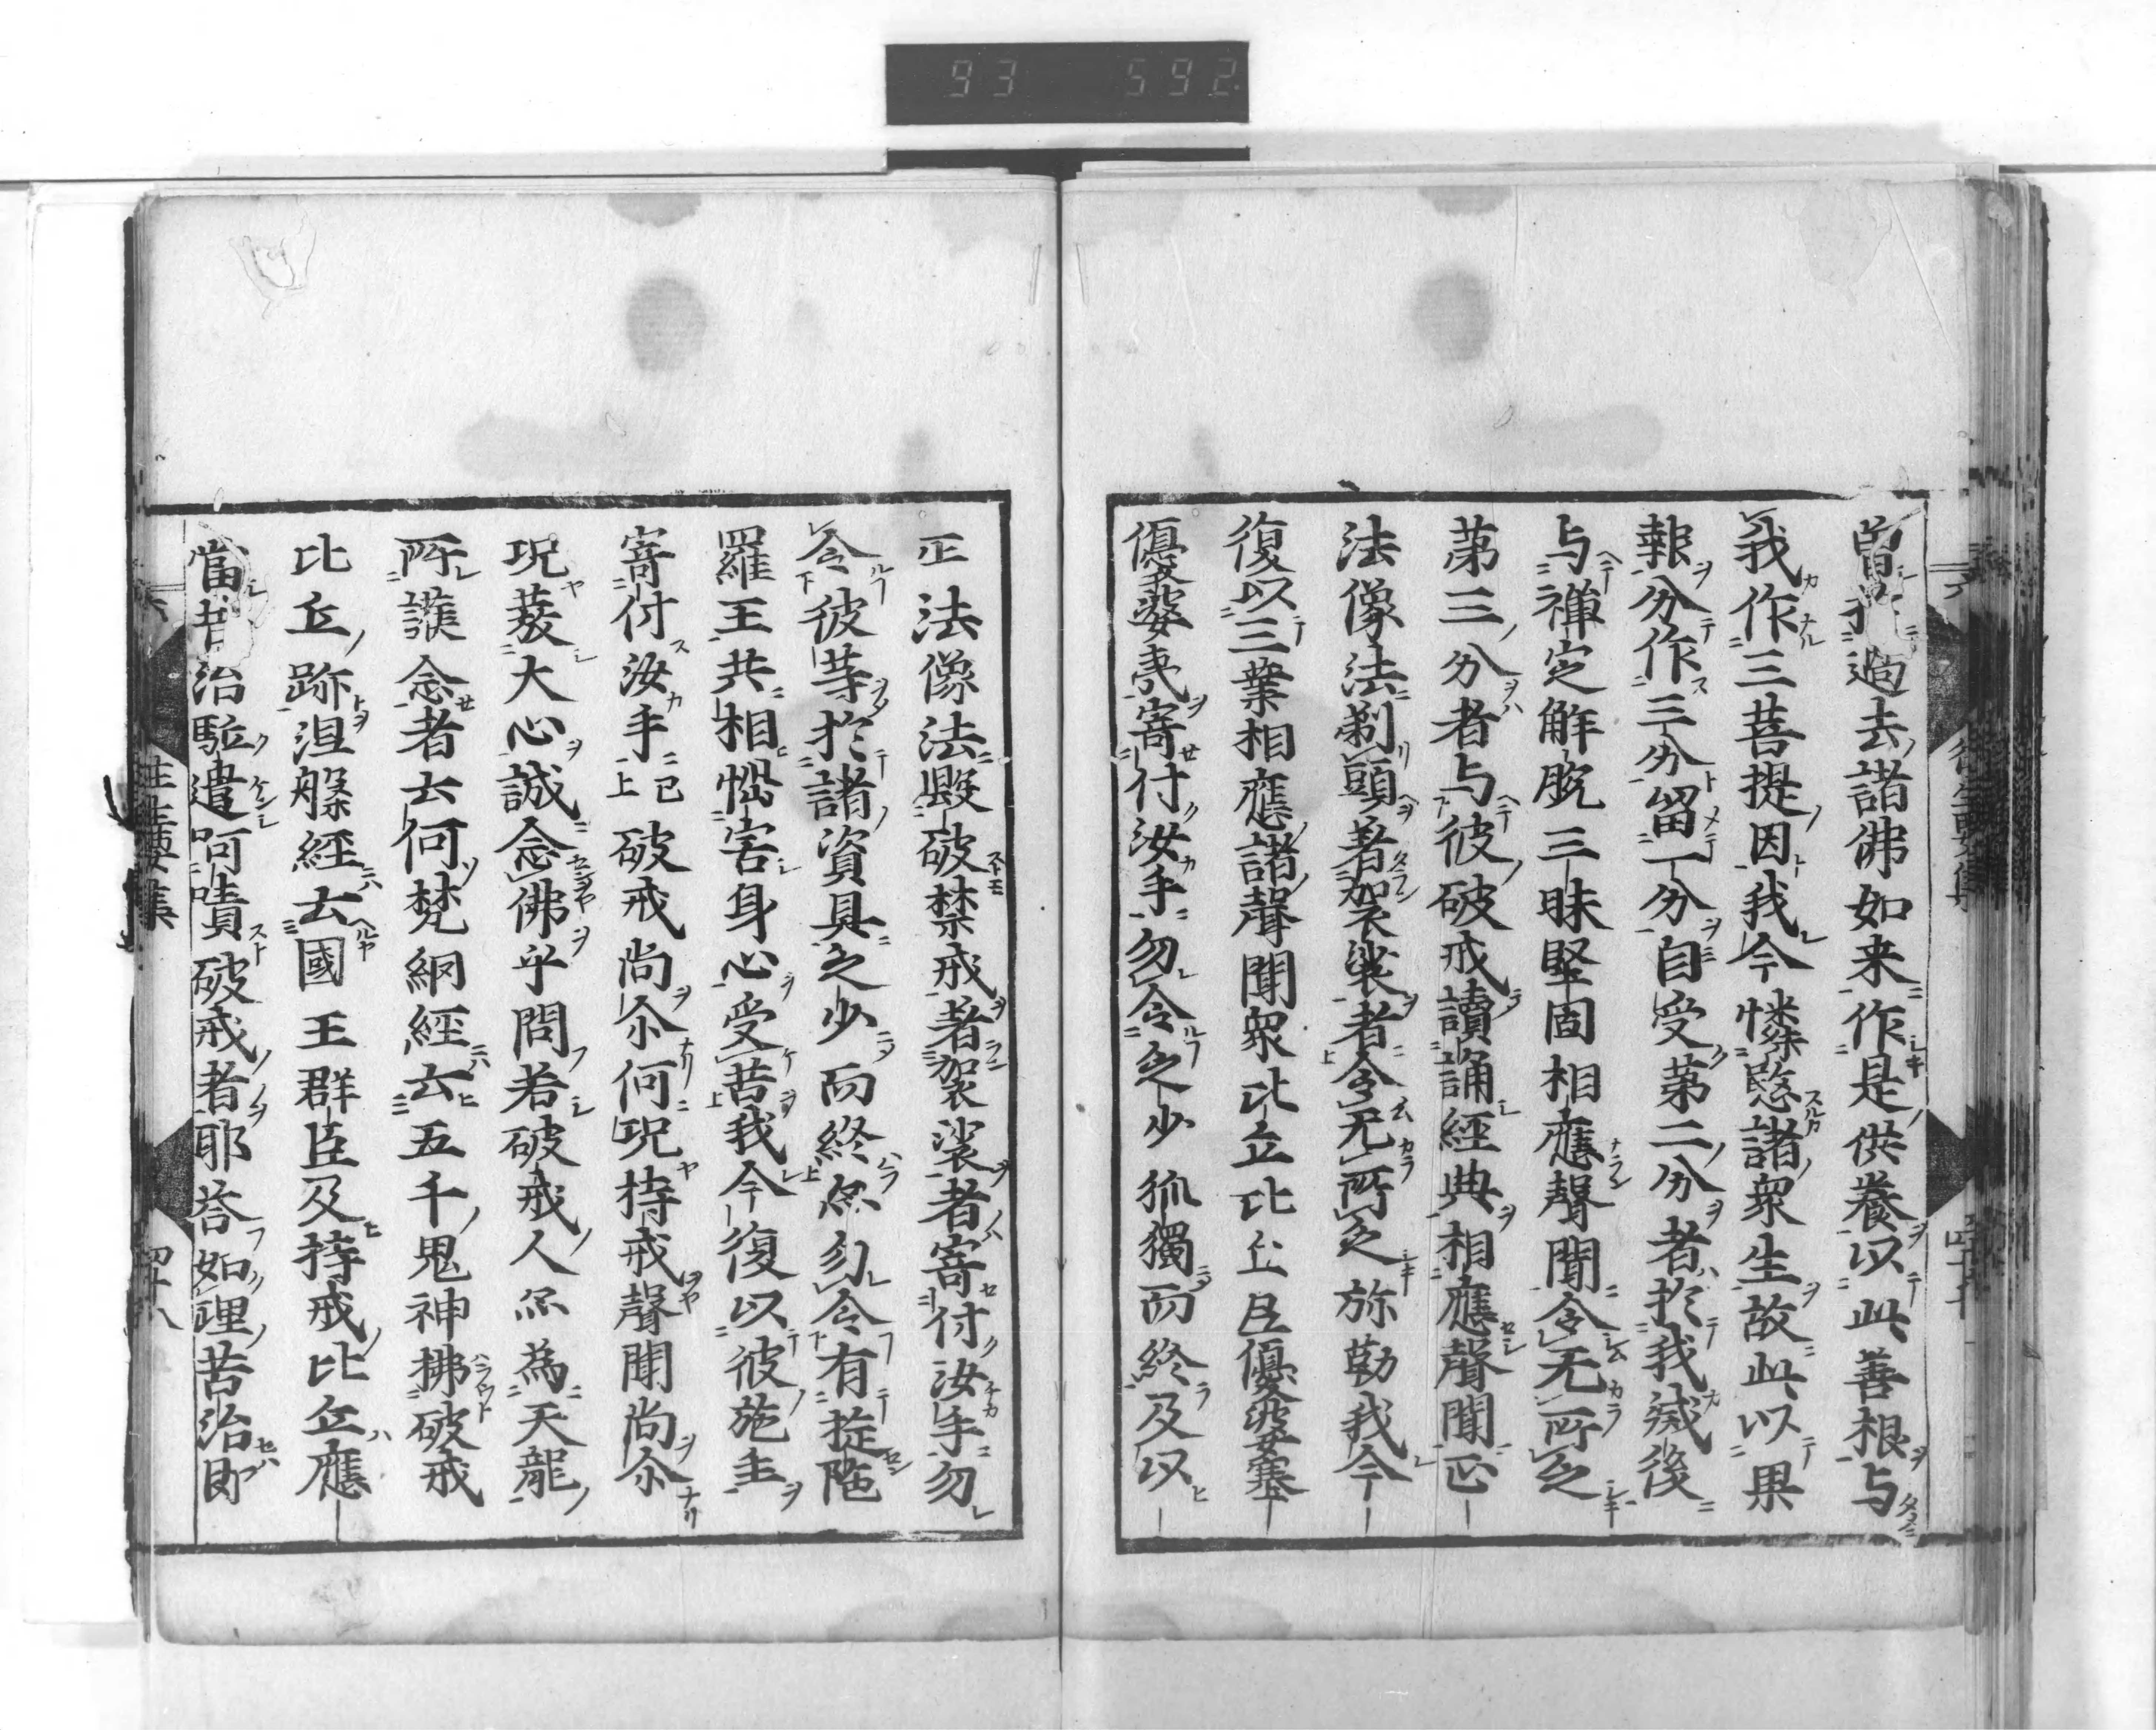 93 592
曽於過去諸佛如来作是供養以此善根与
我作三菩提因我今憐愍諸衆生故此以果
報分作三分留一分自受第二分者於我滅後
与禅定解脱三昧堅固相應聲聞令无所乏
第三分者与彼破戒讀誦經典相應聲聞正
法像法剃頭著袈裟者令无所乏弥勒我今
復以三業相應諸聲聞衆比丘比丘尼優婆塞
優婆夷寄付汝手勿令乏少孤獨而終及以
正法像法毀破禁戒著袈裟者寄付汝手勿
令彼等於諸資具乏少而終亦勿令有旋陀
羅王共相惱害身心受苦我今復以彼施主
寄付汝手已上破戒尚尒何況持戒聲聞尚尒
況發大心誠念佛乎問若破戒人亦為天龍
所護念者云何梵網經云五千鬼神拂破戒
比丘跡涅槃經云國王群臣及持戒比丘應
當苦治駈遣呵嘖破戒者耶荅如理苦治即
往生要集
四十八